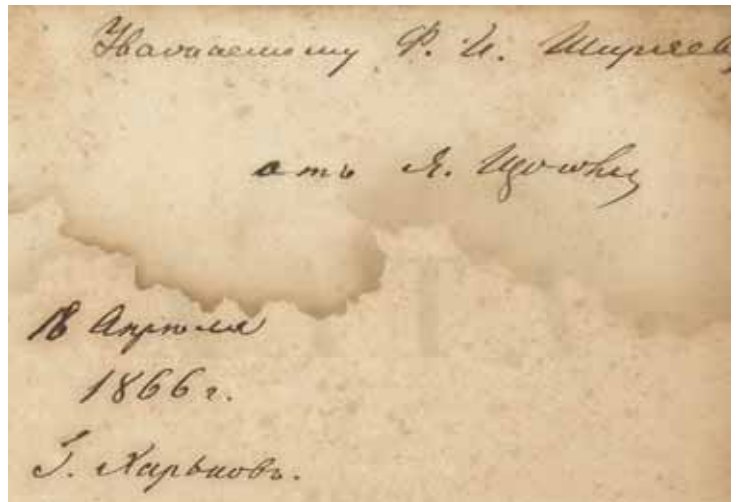 Уважаемому Ф. И. Ширяеву
отъ Я.
18 Апрѣля
1866 г.
Г. Харьковъ.